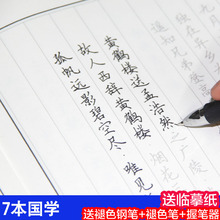 黄鹤楼送孟浩然
故人西辞黄鹤楼
孤帆远影碧空尽
唯见
烟花
之广陵
7本国学
送临摹纸
送褪色钢笔+褪色笔+握笔器